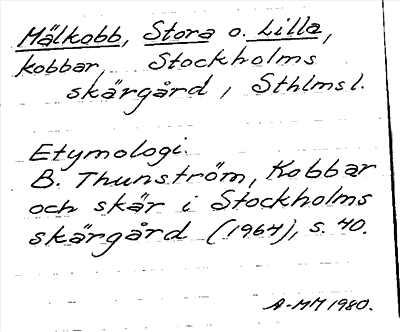 Mälkobb, Stora o. Lilla,
kobbar, Stockholms
skärgård, Sthlmsl.
Etymologi.
B. Thunström, Kobbar
och skär i Stockholms
skärgård (1964), s. 40.
A-MM 1980.